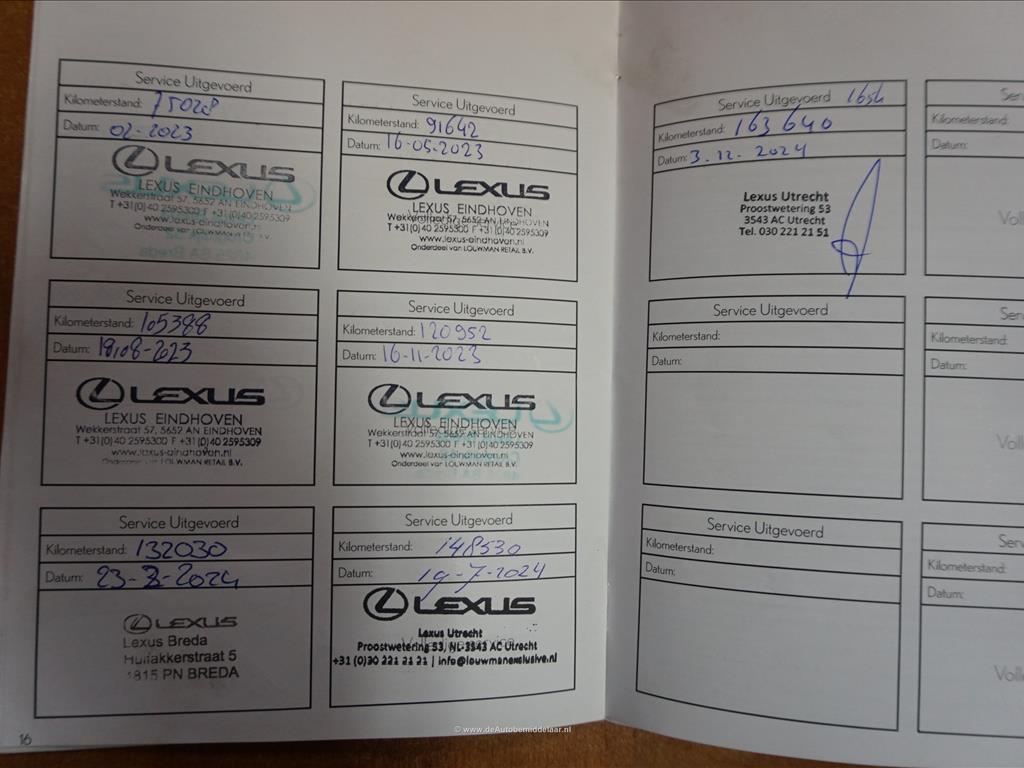 Service Uitgevoerd
Kilometerstand: 75028
Datum: 02-2023
LEXUS
LEXUS EINDHOVEN
Wekkerstraat 57, 5652 AN EINDHOVEN
T +31(0)40 2595300 F +31(0)40 2595309
www.lexus-eindhoven
Service Uitgevoerd
Kilometerstand: 91642
Datum: 16-05-2023
LEXUS
LEXUS EINDHOVEN
Wekkerstraat 57, 5652 AN EINDHOVEN
T +31(0)40 2595300 F +31(0)40 2595309
www.lexus-eindhoven.nl
Onderdeel van LOUWMAN RETAIL B.V.
Service Uitgevoerd
Kilometerstand: 105388
Datum: 18-08-2023
LEXUS
LEXUS EINDHOVEN
Wekkerstraat 57, 5652 AN EINDHOVEN
T +31(0)40 2595300 F +31(0)40 2595309
www.lexus-eindhoven.nl
Onderdeel van LOUWMAN RETAIL B.V.
Service Uitgevoerd
Kilometerstand: 120952
Datum: 16-11-2023
LEXUS
LEXUS EINDHOVEN
Wekkerstraat 57, 5652 AN EINDHOVEN
T +31(0)40 2595300 F +31(0)40 2595309
www.lexus-eindhoven.nl
Onderdeel van LOUWMAN RETAIL B.V.
Service Uitgevoerd
Kilometerstand: 132030
Datum: 23-2-2024
LEXUS
Lexus Breda
Huifakkerstraat 5
4815 PN BREDA
Service Uitgevoerd
Kilometerstand: 148530
Datum: 19-7-2024
LEXUS
Lexus Utrecht
Proostwetering 53, NL-3543 AC Utrecht
+31 (0)30 221 21 21 | info@louwmanexclusive.nl
16
Service Uitgevoerd
Kilometerstand: 163640
Datum: 3.12.2024
Lexus Utrecht
Proostwetering 53
3543 AC Utrecht
Tel. 030 221 21 51
Service Uitgevoerd
Kilometerstand:
Datum:
Service Uitgevoerd
Kilometerstand:
Datum:
Ser
Kilometerstand:
Datum:
Vol
Ser
Kilometerstand:
Datum:
Vol
Ser
Kilometerstand:
Datum:
Voll
© www.deAutobemiddelaar.nl